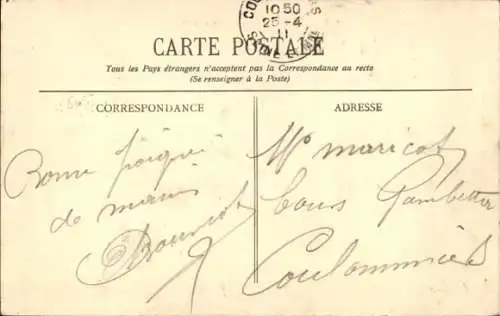 10 50
25 - 4
11
CARTE POSTALE
Tous les Pays étrangers n'acceptent pas la Correspondance au recto
(Se renseigner à la Poste)
CORRESPONDANCE
Bonne poignée
de mains
ADRESSE
Mr maricot
Cours Gambetta
Coulommiers